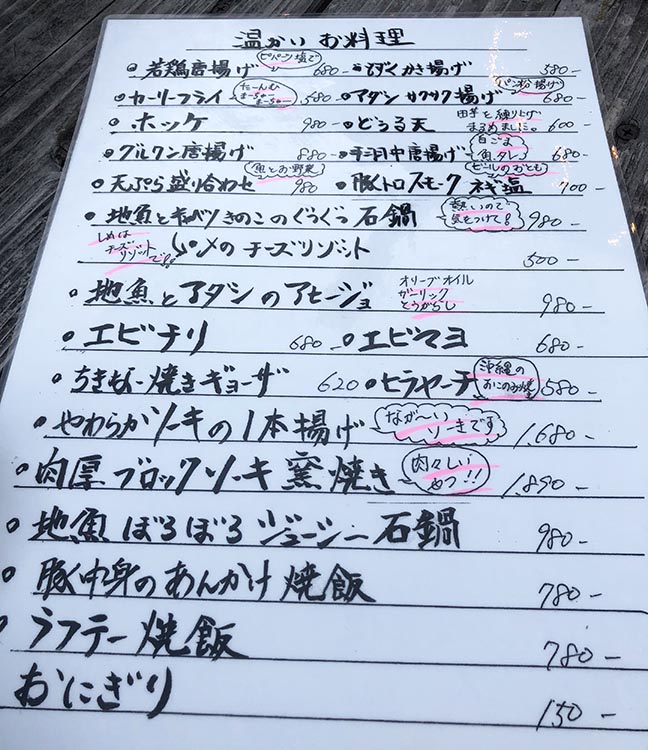 温かいお料理
・若鶏唐揚げ ピパーツ塩で 680 ・もずくかき揚げ 580-
・カーリーフライ 580- ・アダン サクサク揚げ パン粉揚げ 680-
・ホッケ 980- ・どぅる天 田芋を練り上げ まるめました。 600-
・グルクン唐揚げ 880- ・手羽中唐揚げ 白ごま 肉タレ 680-
・天ぷら盛り合わせ 魚とお野菜 980 ・豚トロスモーク ねぎ塩 ビールのおとも 700-
・地魚とキャベツきのこのぐつぐつ石鍋 熱いので 気をつけて! 980-
しめは チーズ リゾット で!! ↳〆のチーズリゾット 500-
・地魚とアダンのアヒージョ オリーブオイル ガーリック とうがらし 980-
・エビチリ 680- ・エビマヨ 680-
・ちきなー焼きギョーザ 620 ・ヒラヤーチ 沖縄の おこのみ焼 580-
・やわらかソーキの1本揚げ なが〜い ソーキです 1,680-
・肉厚ブロックソーキ窯焼き 肉々しい やつ!! 1,890-
・地魚ぼろぼろジューシー石鍋 980-
・豚中身のあんかけ焼飯 780-
・ラフテー焼飯 780-
おにぎり 150-